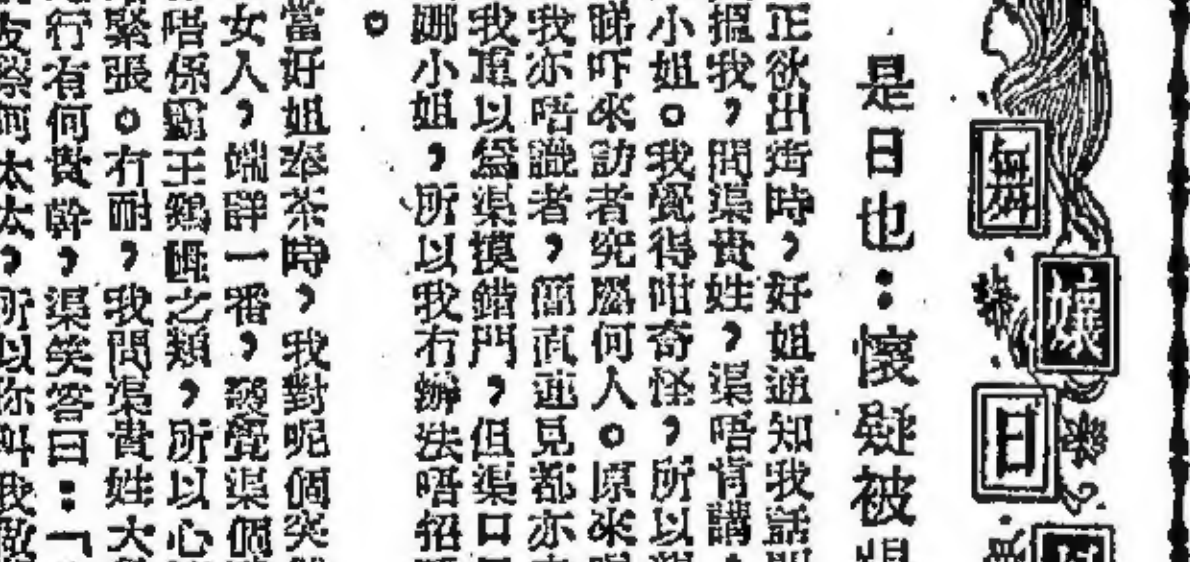 孃
日
是日也：懷疑被
正欲出街時，好姐通知我話
搵我，問渠貴姓，渠唔肯講
小姐。我覺得咁奇怪，所以
睇吓來訪者究屬何人。原來
我亦唔識者，簡直連見都亦
我重以爲渠摸錯門，但渠口
娜小姐，所以我冇辦法唔招
。
當好姐奉茶時，我對呢個突
女人，端詳一番，發覺渠個
唔係霸王鷄乸之類，所以心
緊張。冇耐，我問渠貴姓大
行有何貴幹，渠笑答曰：「
太太，所以你叫我